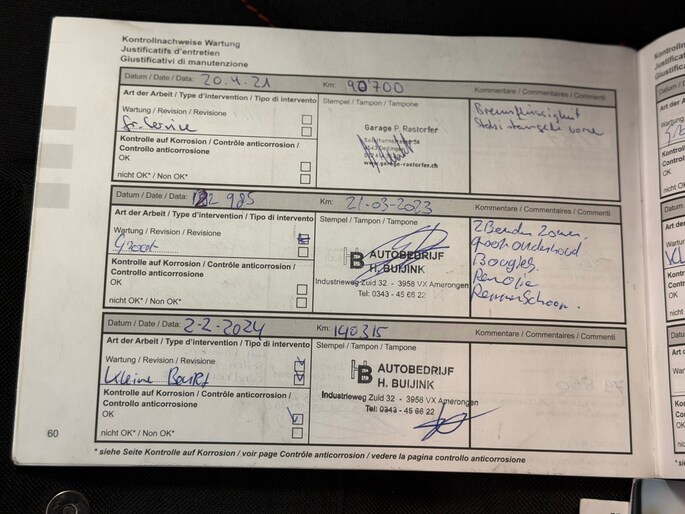 Kontrollnachweise Wartung
Justificatifs d'entretien
Giustificativi di manutenzione
Datum / Date / Data: 20.4.21 Km: 90'700 Kommentare / Commentaires / Commenti
Art der Arbeit / Type d'intervention / Tipo di intervento Stempel / Tampon / Tampone
Wartung / Revision / Revisione
Gr. Service
Kontrolle auf Korrosion / Contrôle anticorrosion /
Controllo anticorrosione
OK
nicht OK* / Non OK*
Garage P. Rastorfer
www.garage-rastorfer.ch
Bremsflüssigkeit
vorne
Datum / Date / Data: 122 985 Km: 21-03-2023 Kommentare / Commentaires / Commenti
Art der Arbeit / Type d'intervention / Tipo di intervento Stempel / Tampon / Tampone
Wartung / Revision / Revisione
Groot
Kontrolle auf Korrosion / Contrôle anticorrosion /
Controllo anticorrosione
OK
nicht OK* / Non OK*
HB AUTOBEDRIJF
H. BUIJINK
Industrieweg Zuid 32 - 3958 VX Amerongen
Tel: 0343 - 45 66 22
2 Banden Zomer.
groot onderhoud
Bougies
Remolie
Remmen Schoon.
Datum / Date / Data: 2-2-2024 Km: 140315 Kommentare / Commentaires / Commenti
Art der Arbeit / Type d'intervention / Tipo di intervento Stempel / Tampon / Tampone
Wartung / Revision / Revisione
Kleine Beurt
Kontrolle auf Korrosion / Contrôle anticorrosion /
Controllo anticorrosione
OK
nicht OK* / Non OK*
HB AUTOBEDRIJF
H. BUIJINK
Industrieweg Zuid 32 - 3958 VX Amerongen
Tel: 0343 - 45 66 22
60
* siehe Seite Kontrolle auf Korrosion / voir page Contrôle anticorrosion / vedere la pagina controllo anticorrosione